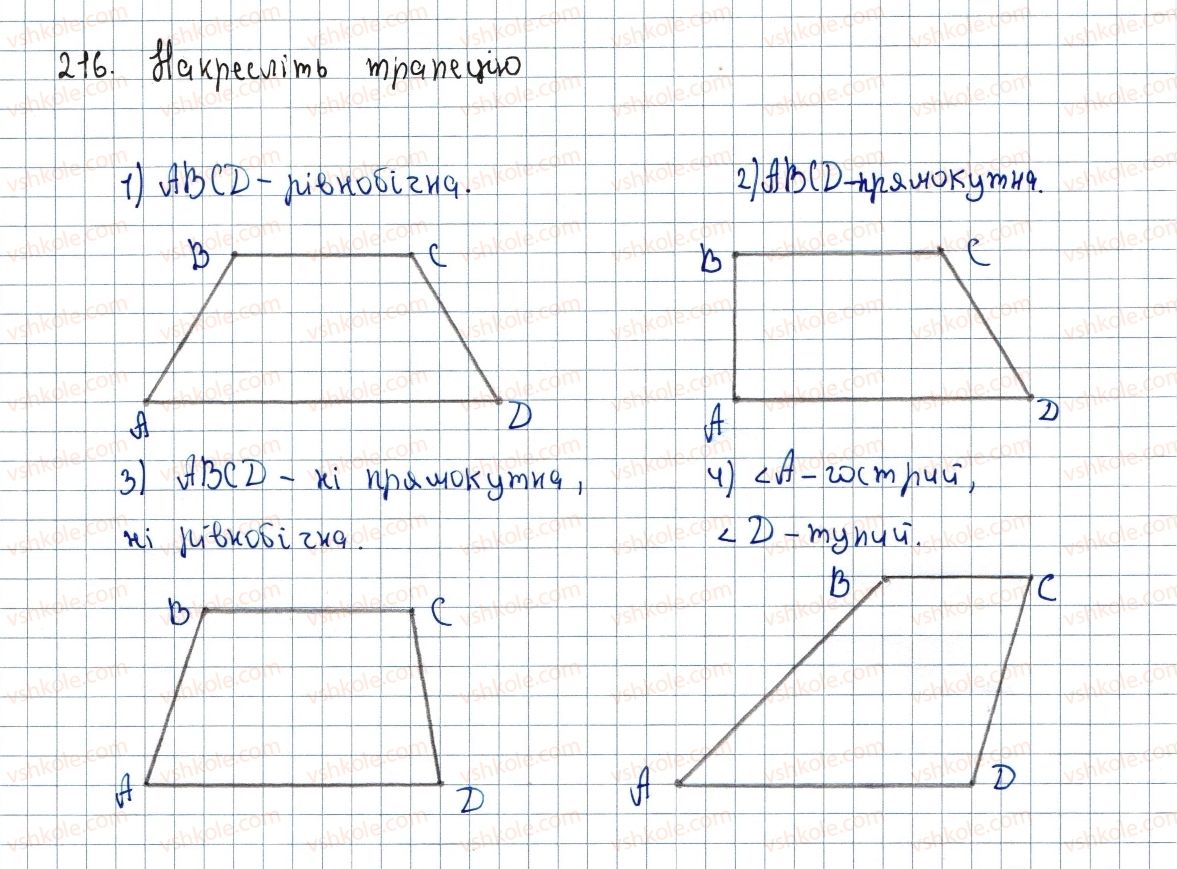 216. Накресліть трапецію
1) ABCD - рівнобічна.
2) ABCD - прямокутна.
B C
A D
B C
A D
3) ABCD - ні прямокутна,
ні рівнобічна.
4) ∠A - гострий,
∠D - тупий.
B C
A D
B C
A D
vshkole.com